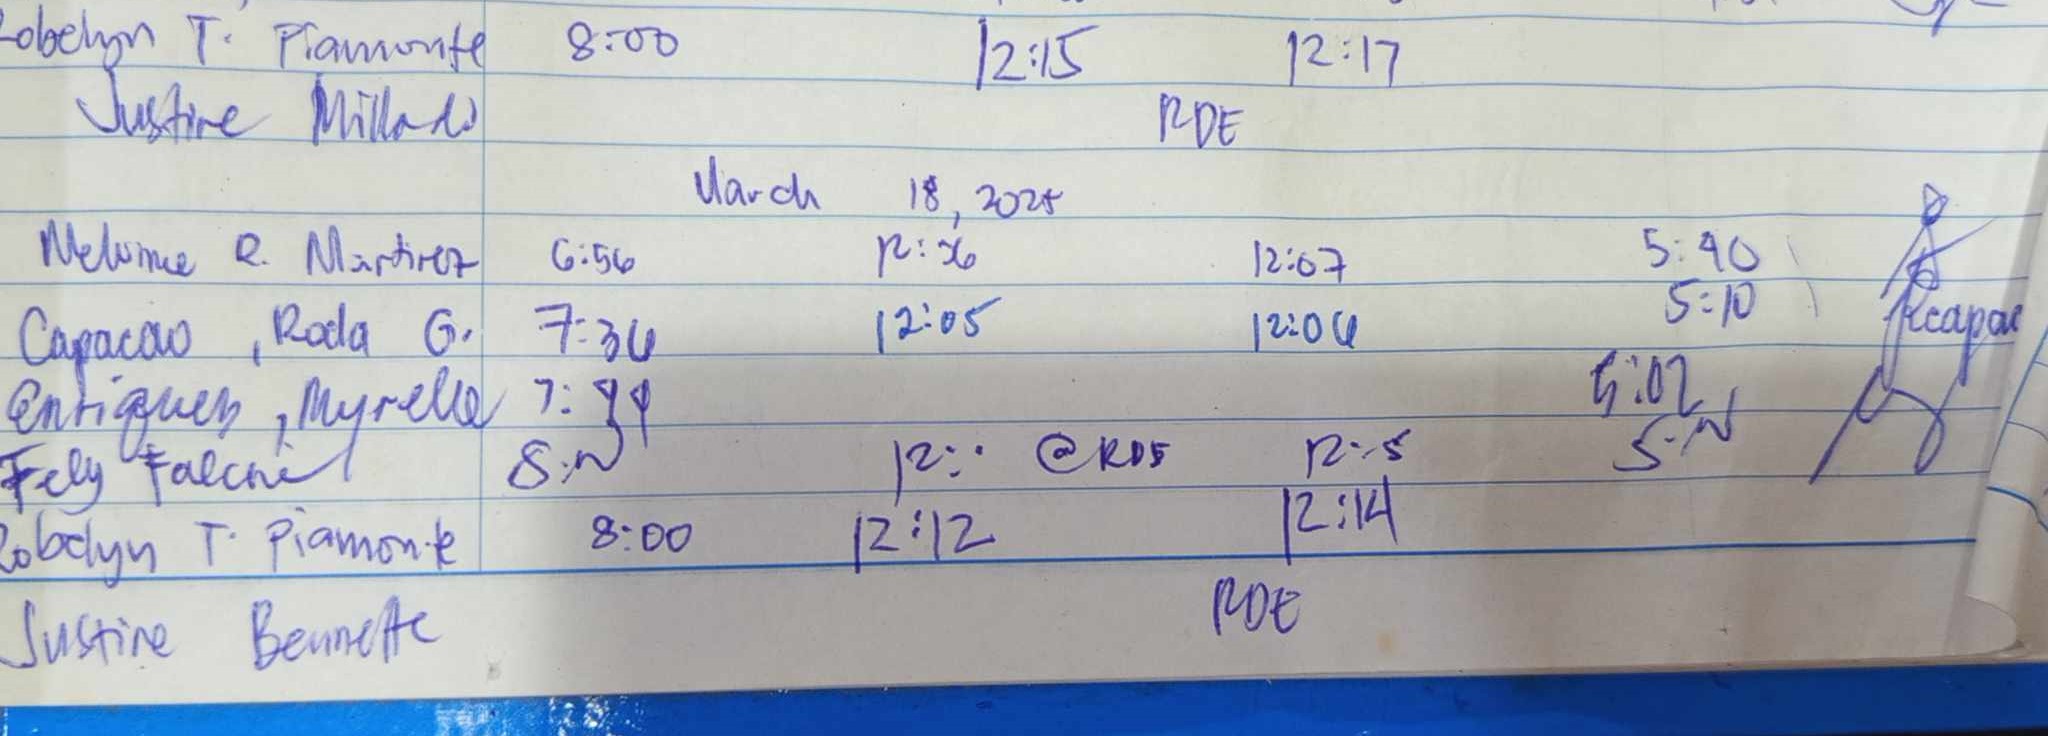 Robelyn T. Piamonte 8:00 12:15 12:17
Justine Millado RDE
March 18, 2025
Melvinne R. Martirez 6:56 12:06 12:07 5:40
Capacao, Roda G. 7:36 12:05 12:06 5:10 Rcapac
Enriquez, Myrelle 7:44 5:02
Fely Falcni 8:00 12: @RDE 12: 5:00
Robelyn T. Piamonte 8:00 12:12 12:14
Justine Bennette RDE